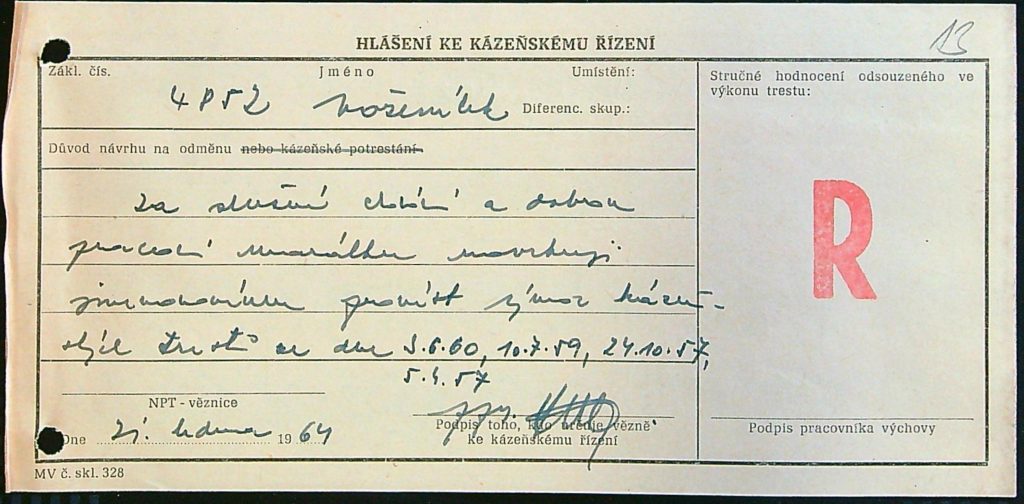 13
HLÁŠENÍ KE KÁZEŇSKÉMU ŘÍZENÍ
Zákl. čís. Jméno Umístění:
4852 Koženílek Diferenc. skup.:
Důvod návrhu na odměnu nebo kázeňské potrestání.
za slušné chování a dobrou
pracovní morálku navrhuji
jmenovanému provést výmaz kázeň-
ských trestů ze dne 3.6.60, 10.7.59, 24.10.57,
5.4.57
NPT - věznice
Podpis toho, kdo uvedje vězně
ke kázeňskému řízení
Dne 21. ledna 1964
Stručné hodnocení odsouzeného ve
výkonu trestu:
R
Podpis pracovníka výchovy
MV č. skl. 328